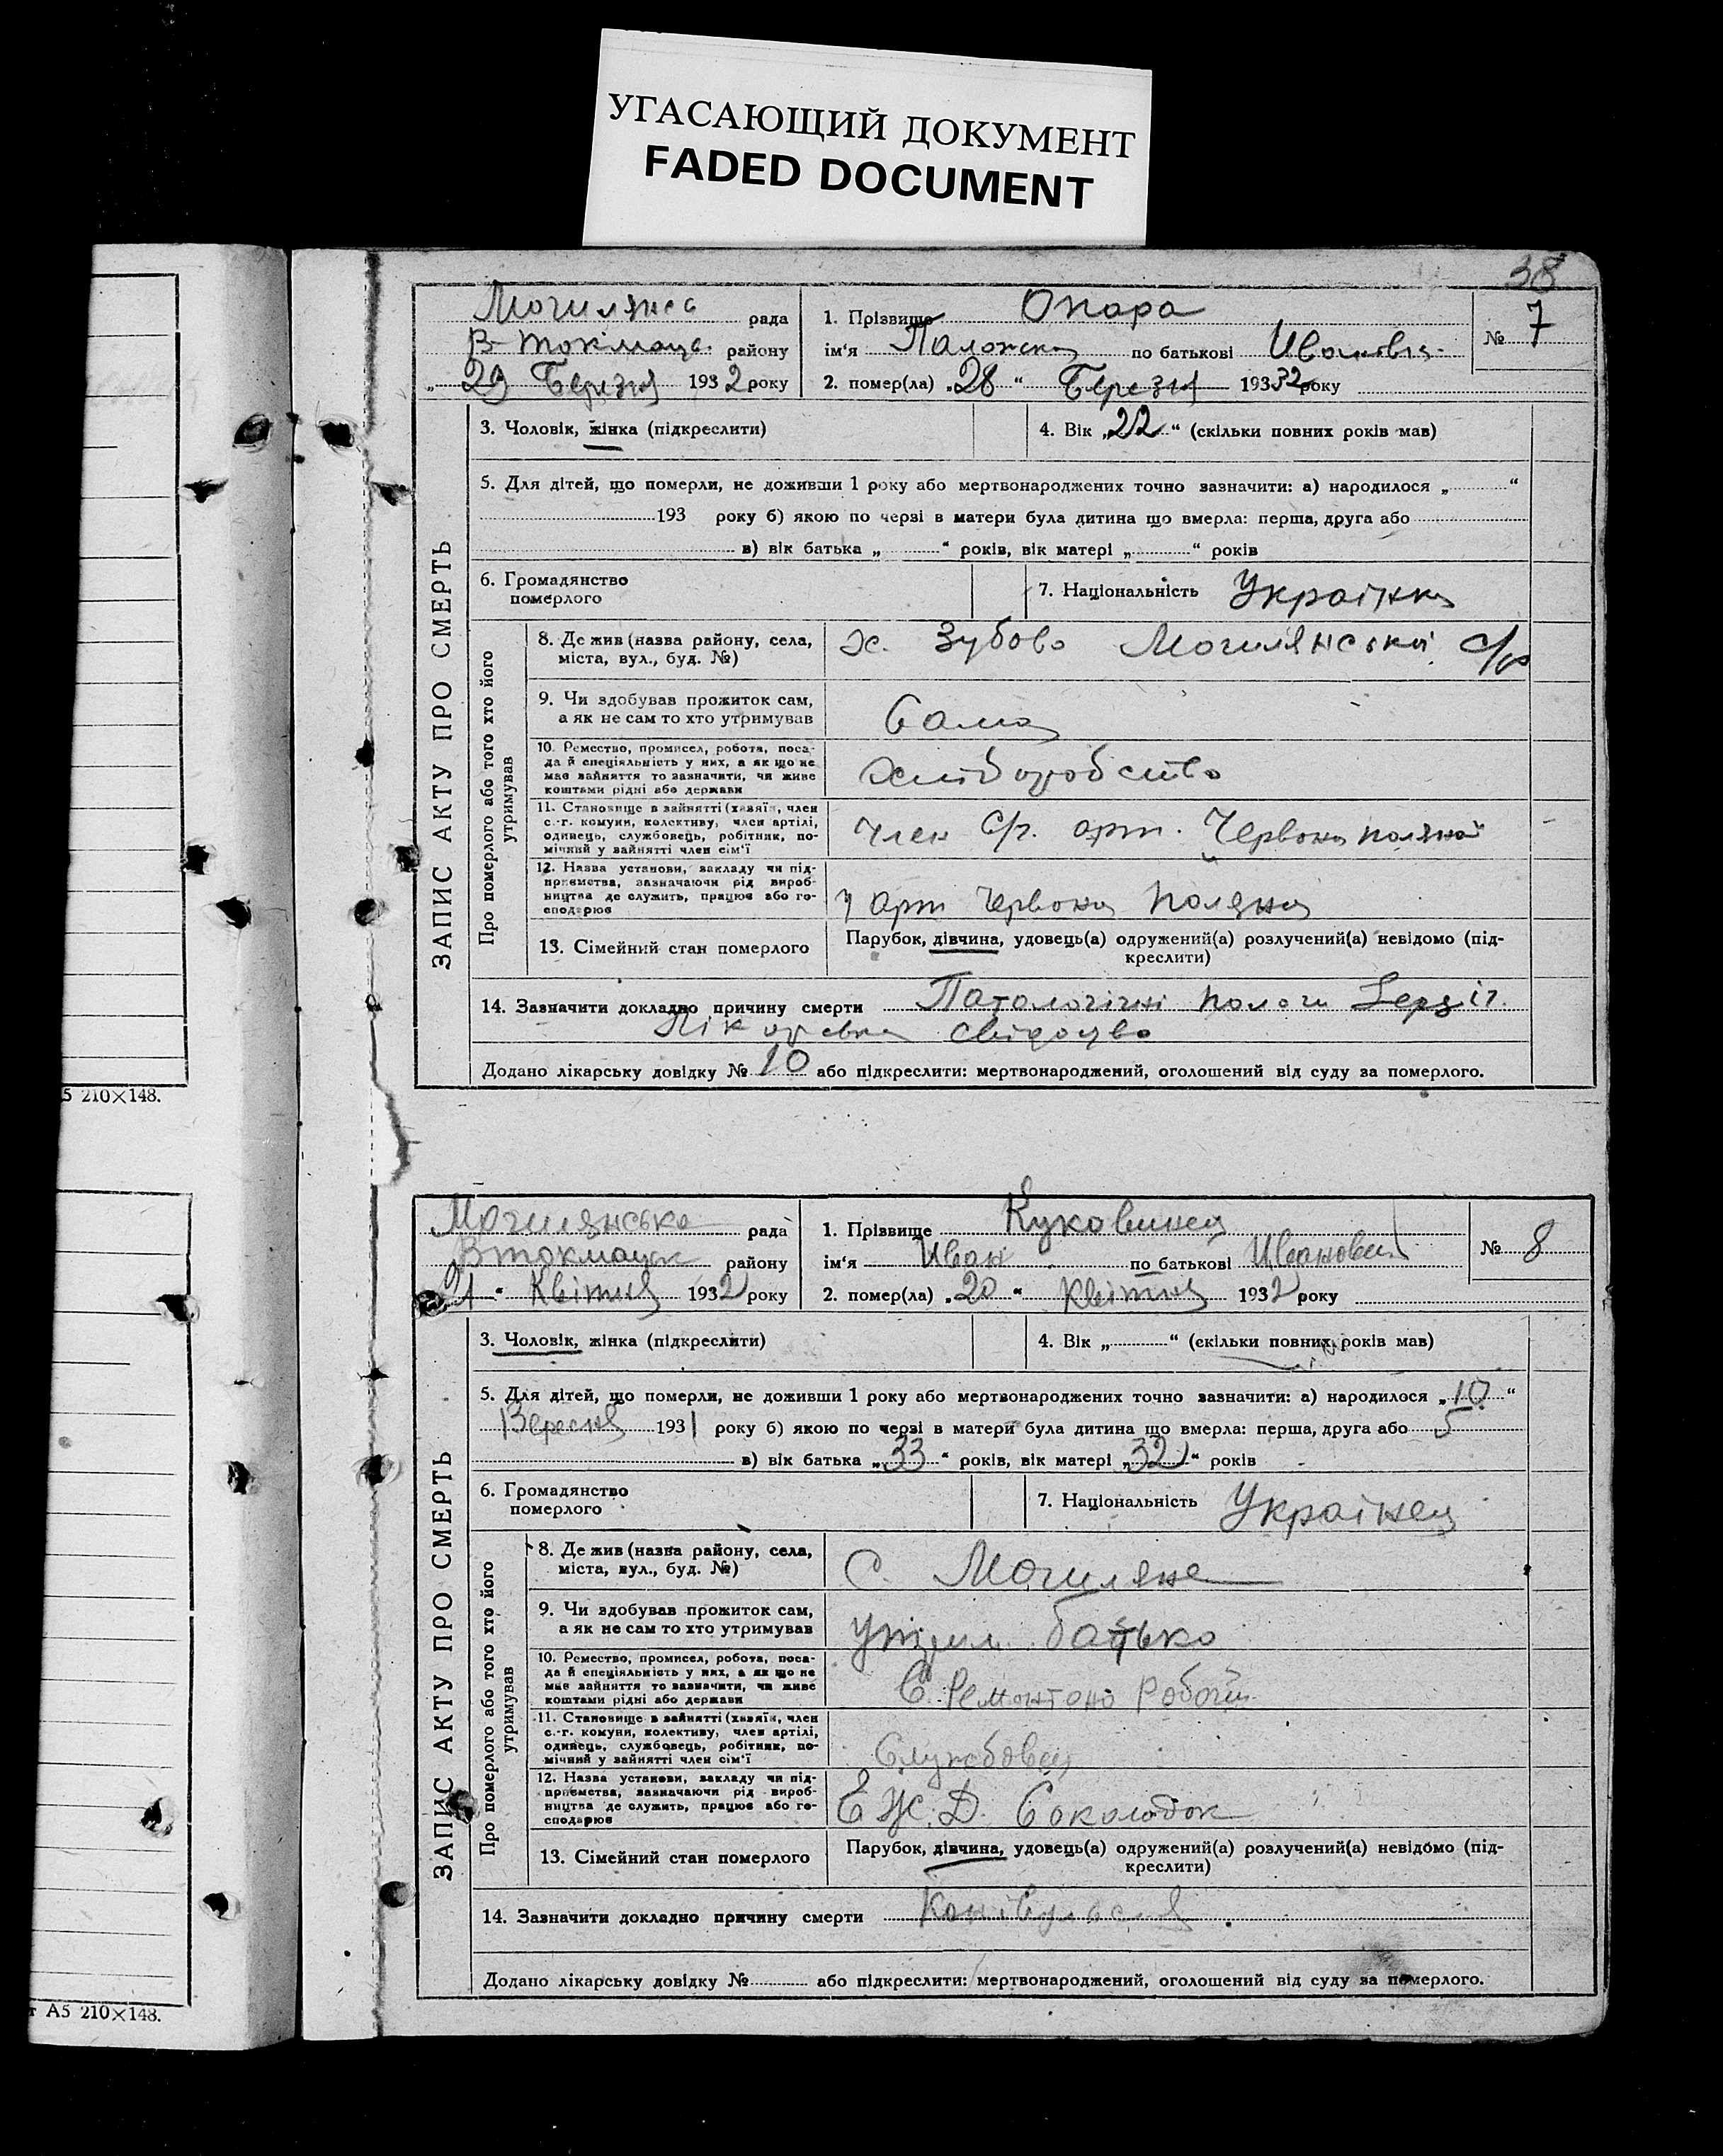 УГАСАЮЩИЙ ДОКУМЕНТ
FADED DOCUMENT
38
5 210×148.
А5 210×148.
ЗАПИС АКТУ ПРО СМЕРТЬ
Могилянсь рада
В-Токмацьк. району
„ 29 Березня 1932 року
1. Прізвище Опара
ім'я по батькові Ивановна
2. помер(ла) „28“ Березня 19332 року
№ 7
3. Чоловік, жінка (підкреслити)
4. Вік „22“ (скільки повних років мав)
5. Для дітей, що померли, не доживши 1 року або мертвонароджених точно зазначити: а) народилося „ “
193 року б) якою по черзі в матери була дитина що вмерла: перша, друга або
в) вік батька „ “ років, вік матері „ “ років
6. Громадянство
померлого
7. Національність Українка
Про померлого або того хто його
утримував
8. Де жив (назва району, села,
міста, вул., буд. №)
х. Зубово Могилянської с/р
9. Чи здобував прожиток сам,
а як не сам то хто утримував
Сама
10. Ремество, промисел, робота, поса-
да й спеціяльність у них, а як що не
має зайняття то зазначити, чи живе
коштами рідні або держави
Хліборобство
11. Становище в зайнятті (хазяїн, член
с.-г. комуни, колективу, член артілі,
одинець, службовець, робітник, по-
мічний у зайнятті член сім'ї
Член С/г. арт. Червона поляна
12. Назва установи, закладу чи під-
приємства, зазначаючи рід вироб-
ництва де служить, працює або го-
сподарює
У арт Червона Поляна
13. Сімейний стан померлого
Парубок, дівчина, удовець(а) одружений(а) розлучений(а) невідомо (під-
креслити)
14. Зазначити докладно причину смерти Патологічні пологи
Лікарське свідоцтво
Додано лікарську довідку № 10 або підкреслити: мертвонароджений, оголошений від суду за померлого.
ЗАПИС АКТУ ПРО СМЕРТЬ
Могилянська рада
В Токмацьк району
21 “ Квітня 1932 року
1. Прізвище Куковинец
ім'я Иван по батькові Иванович
2. помер(ла) „20“ Квітня 1932 року
№ 8
3. Чоловік, жінка (підкреслити)
4. Вік „ “ (скільки повних років мав)
5. Для дітей, що померли, не доживши 1 року або мертвонароджених точно зазначити: а) народилося „10“
Вересня 1931 року б) якою по черзі в матери була дитина що вмерла: перша, друга або 5
в) вік батька „33“ років, вік матері „32“ років
6. Громадянство
померлого
7. Національність Українец
Про померлого або того хто його
утримував
8. Де жив (назва району, села,
міста, вул., буд. №)
С. Могиляне
9. Чи здобував прожиток сам,
а як не сам то хто утримував
Утрим. батько
10. Ремество, промисел, робота, поса-
да й спеціяльність у них, а як що не
має зайняття то зазначити, чи живе
коштами рідні або держави
11. Становище в зайнятті (хазяїн, член
с.-г. комуни, колективу, член артілі,
одинець, службовець, робітник, по-
мічний у зайнятті член сім'ї
Службовец
12. Назва установи, закладу чи під-
приємства, зазначаючи рід вироб-
ництва де служить, працює або го-
сподарює
Е Ж. Д.
13. Сімейний стан померлого
Парубок, дівчина, удовець(а) одружений(а) розлучений(а) невідомо (під-
креслити)
14. Зазначити докладно причину смерти
Додано лікарську довідку № або підкреслити: мертвонароджений, оголошений від суду за померлого.